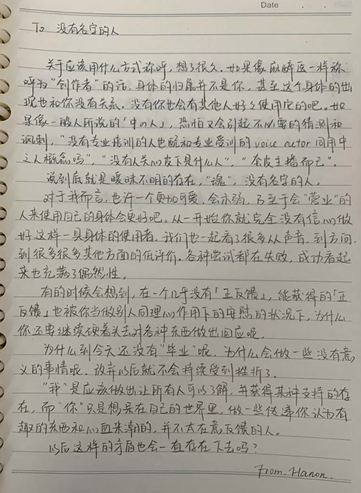 Date
To 没有名字的人
关于应该用什么方式称呼，想了很久。如果像麻醉医一样称
呼为“创作者”的话，身体的归属并不是你，甚至这个身体的出
现也和你没有关系。没有你也会有其他人好好使用它的吧。如
果像一般人所说的「中の人」，恐怕又会引起不必要的猜测和
讽刺，“没有专业培训的人也能和专业受训的 voice actor 同用中
之人概念吗”，“没有人关心皮下是什么人”，“杂皮主播而已”。
说到底就是暧昧不明的存在，“魂”，没有名字的人。
对于我而言，也许一个更加可爱，会
的人来使用自己的身体会更好吧，从一开始你就完全没有信心做
好这样一具身体的使用者。我们也一起看了很多从声音，到方向，
到很多很多其他方面的低评价。各种尝试都在失败，成功看起
来也充满了偶然性。
有的时候会想到，在一个几乎没有「正反馈」，能获得的「正
反馈」也被你当做别人同理心作用下的安慰的状况下，为什么
你还要继续硬着头皮对各种东西做出回应呢。
为什么到今天还没有“毕业”呢，为什么会做一些没有意
义的事情呢，放弃以后就不会持续受到挫折了。
“我”是应该做出让所有人可以了解，并获得某种支持的存
在，而“你”只是想呆在自己的世界里，做一些徒遭你认为有
趣的东西和心血来潮的，并不太在意反馈的人。
以后这样的矛盾也会一直存在下去吗？
From. Hanon.